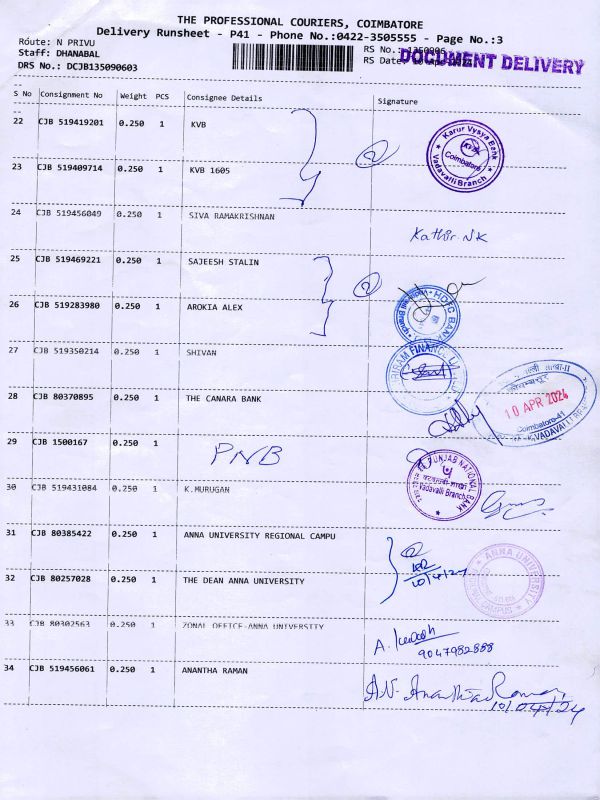 THE PROFESSIONAL COURIERS, COIMBATORE
Delivery Runsheet - P41 - Phone No.:0422-3505555 - Page No.:3
Route: N PRIVU
Staff: DHANABAL
DRS No.: DCJB135090603
RS No.:
RS Date:
DOCUMENT DELIVERY
S No Consignment No Weight PCS Consignee Details Signature
22 CJB 519419201 0.250 1 KVB
Karur Vysya Bank
Coimbatore
Vadavalli Branch
23 CJB 519409714 0.250 1 KVB 1605
24 CJB 519456049 0.250 1 SIVA RAMAKRISHNAN
Kathir.N.K
25 CJB 519469221 0.250 1 SAJEESH STALIN
26 CJB 519283980 0.250 1 AROKIA ALEX
HDFC BANK
27 CJB 519350214 0.250 1 SHIVAN
SHRIRAM FINANCE
28 CJB 80370895 0.250 1 THE CANARA BANK
10 APR 2024
Coimbatore-41
29 CJB 1500167 0.250 1
PNB
PUNJAB NATIONAL BANK
Vadavalli Branch
30 CJB 519431084 0.250 1 K.MURUGAN
31 CJB 80385422 0.250 1 ANNA UNIVERSITY REGIONAL CAMPU
10/4/24
32 CJB 80257028 0.250 1 THE DEAN ANNA UNIVERSITY
ANNA UNIVERSITY
33 CJB 80302563 0.250 1 ZONAL OFFICE-ANNA UNIVERSITY
9047982888
34 CJB 519456061 0.250 1 ANANTHA RAMAN
AN. Anantha Raman
10/04/24